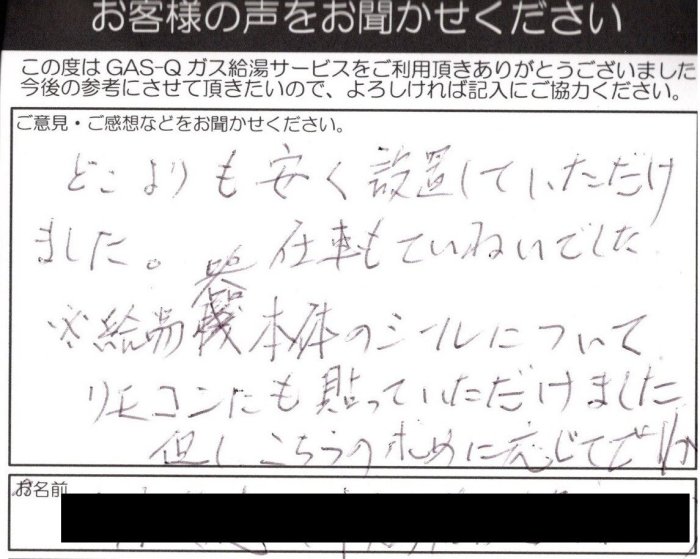 お客様の声をお聞かせください
この度は GAS-Q ガス給湯サービスをご利用頂きありがとうございました
今後の参考にさせて頂きたいので、よろしければ記入にご協力ください。
ご意見・ご感想などをお聞かせください。
どこよりも安く設置していただけ
ました。 仕事もていねいでした
※給湯器本体のシールについて
リモコンにも貼っていただけました
但しこちらの求めに応じてですが
お名前